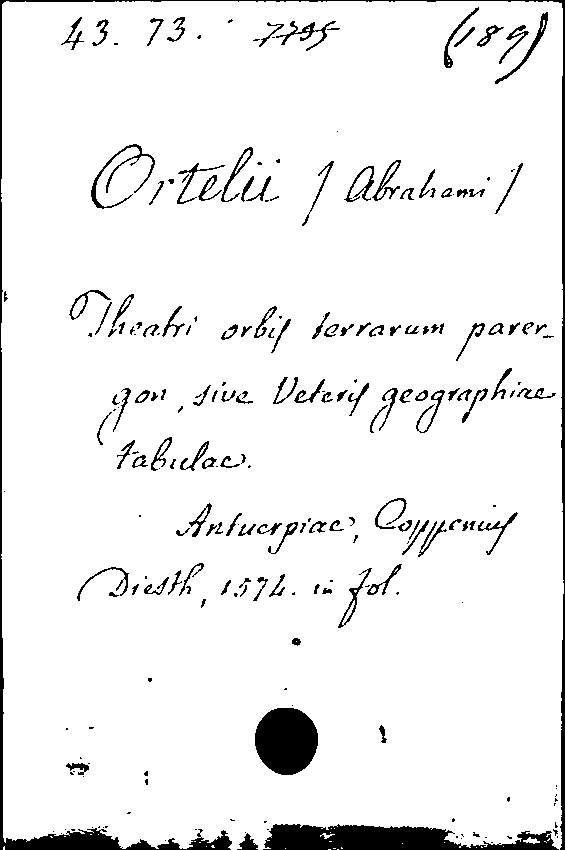 43. 73. 7795 (189)
Ortelii / Abrahami /
Theatri orbis terrarum parer-
gon, sive Veteris geographiae
tabulae.
Antuerpiae, Coppenius
Diesth, 1574. in fol.